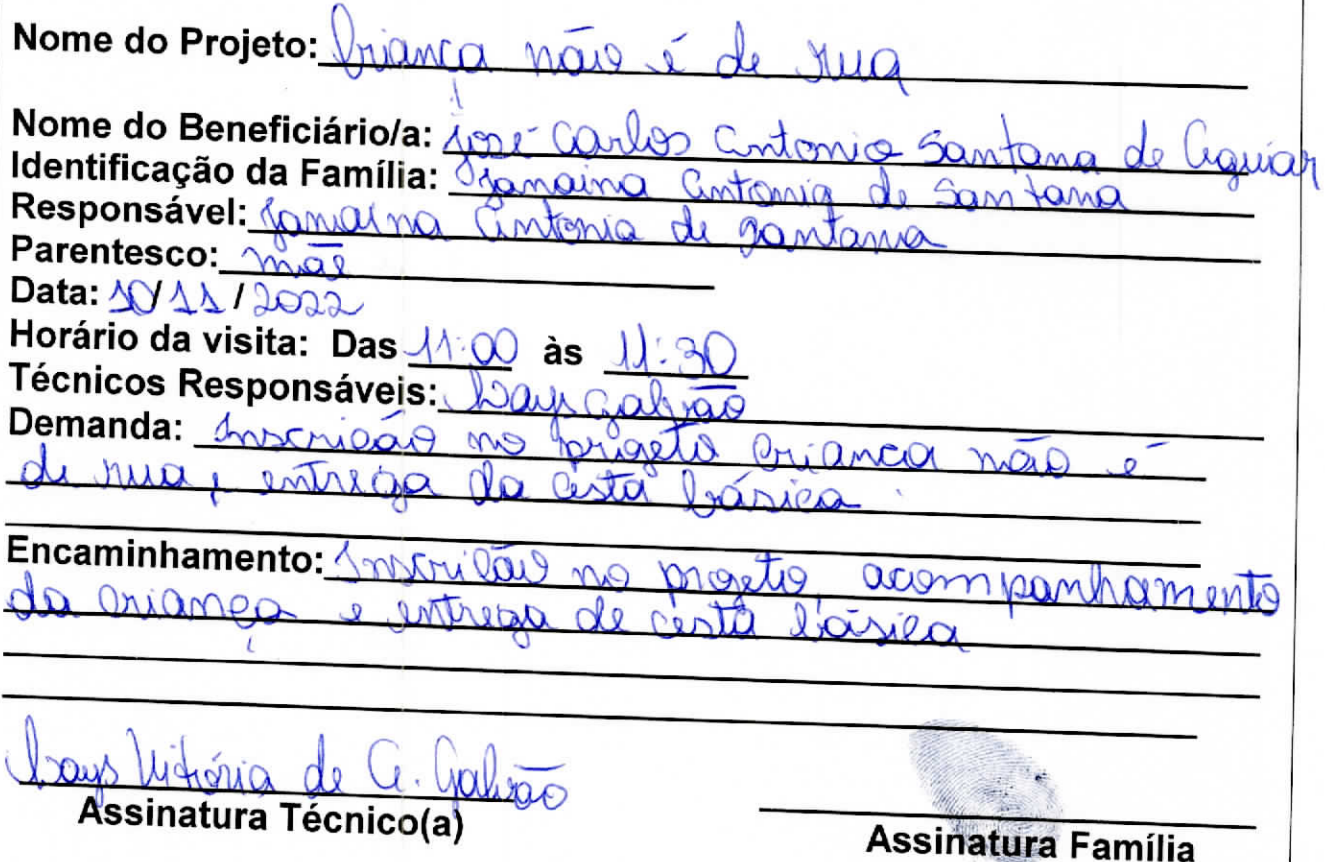 Nome do Projeto: Criança não é de rua
Nome do Beneficiário/a: José Carlos Antonio Santana de Aguiar
Identificação da Família: Janaina Antonia de Santana
Responsável: Janaína Antonia de Santana
Parentesco: mãe
Data: 10/11/2022
Horário da visita: Das 11:00 às 11:30
Técnicos Responsáveis: Lays Galvão
Demanda: Inscrição no projeto Criança não é
de rua, entrega da cesta básica.
Encaminhamento: Inscrição no projeto, acompanhamento
da criança e entrega de cesta básica
Lays Vitória de A. Galvão
Assinatura Técnico(a)
Assinatura Família